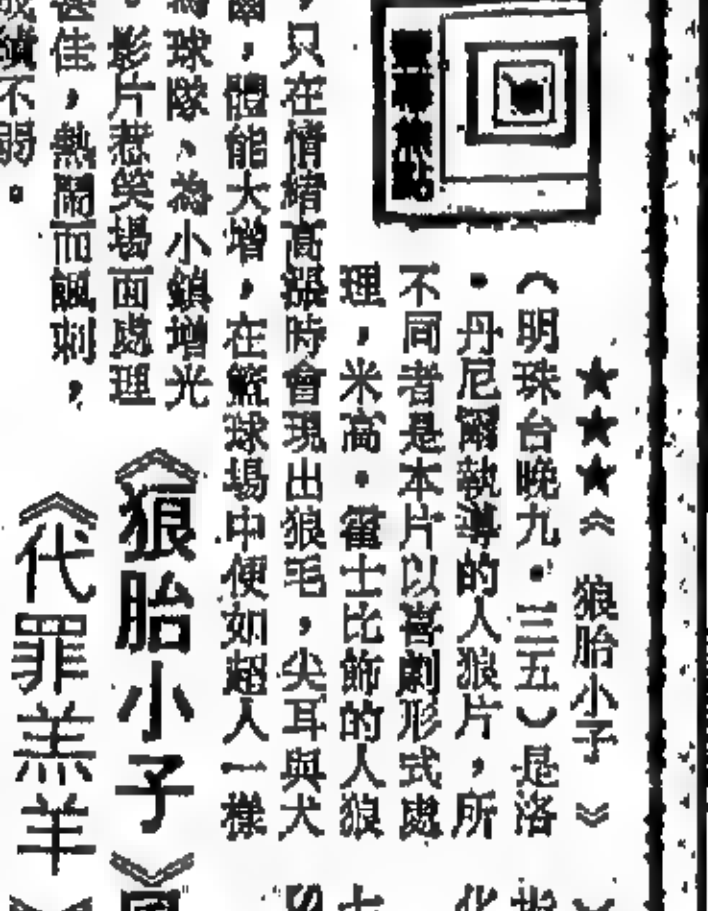 ★★★《狼胎小子》
（明珠台晚九・三五）是洛
・丹尼爾執導的人狼片，所
不同者是本片以喜劇形式處
理，米高・霍士比飾的人狼
，只在情緒高漲時會現出狼毛，尖耳與犬
，體能大增，在籃球場中便如超人一樣
球隊、為小鎮增光
。影片惹笑場面處理
甚佳，熱鬧而諷刺，
成績不弱。
《狼胎小子》
《代罪羔羊